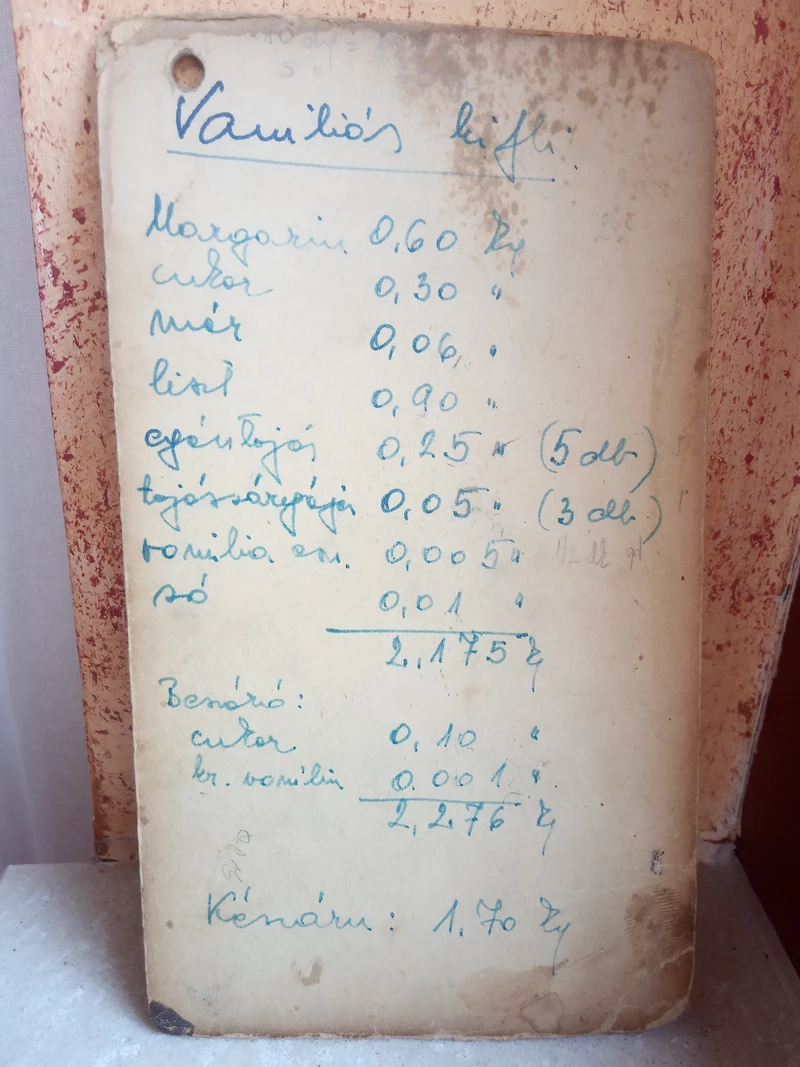 Vaniliás kifli.
Margarin 0,60 kg
cukor 0,30 "
mák 0,06 "
liszt 0,90 "
egésztojás 0,25 " (5 db)
tojássárgája 0,05 " (3 db.)
vanilia 0,005 "
só 0,01 "
2,175 kg
Beszóró:
cukor 0,10 "
kr. vanilin 0.001 "
2,276 kg
Készáru: 1.70 kg